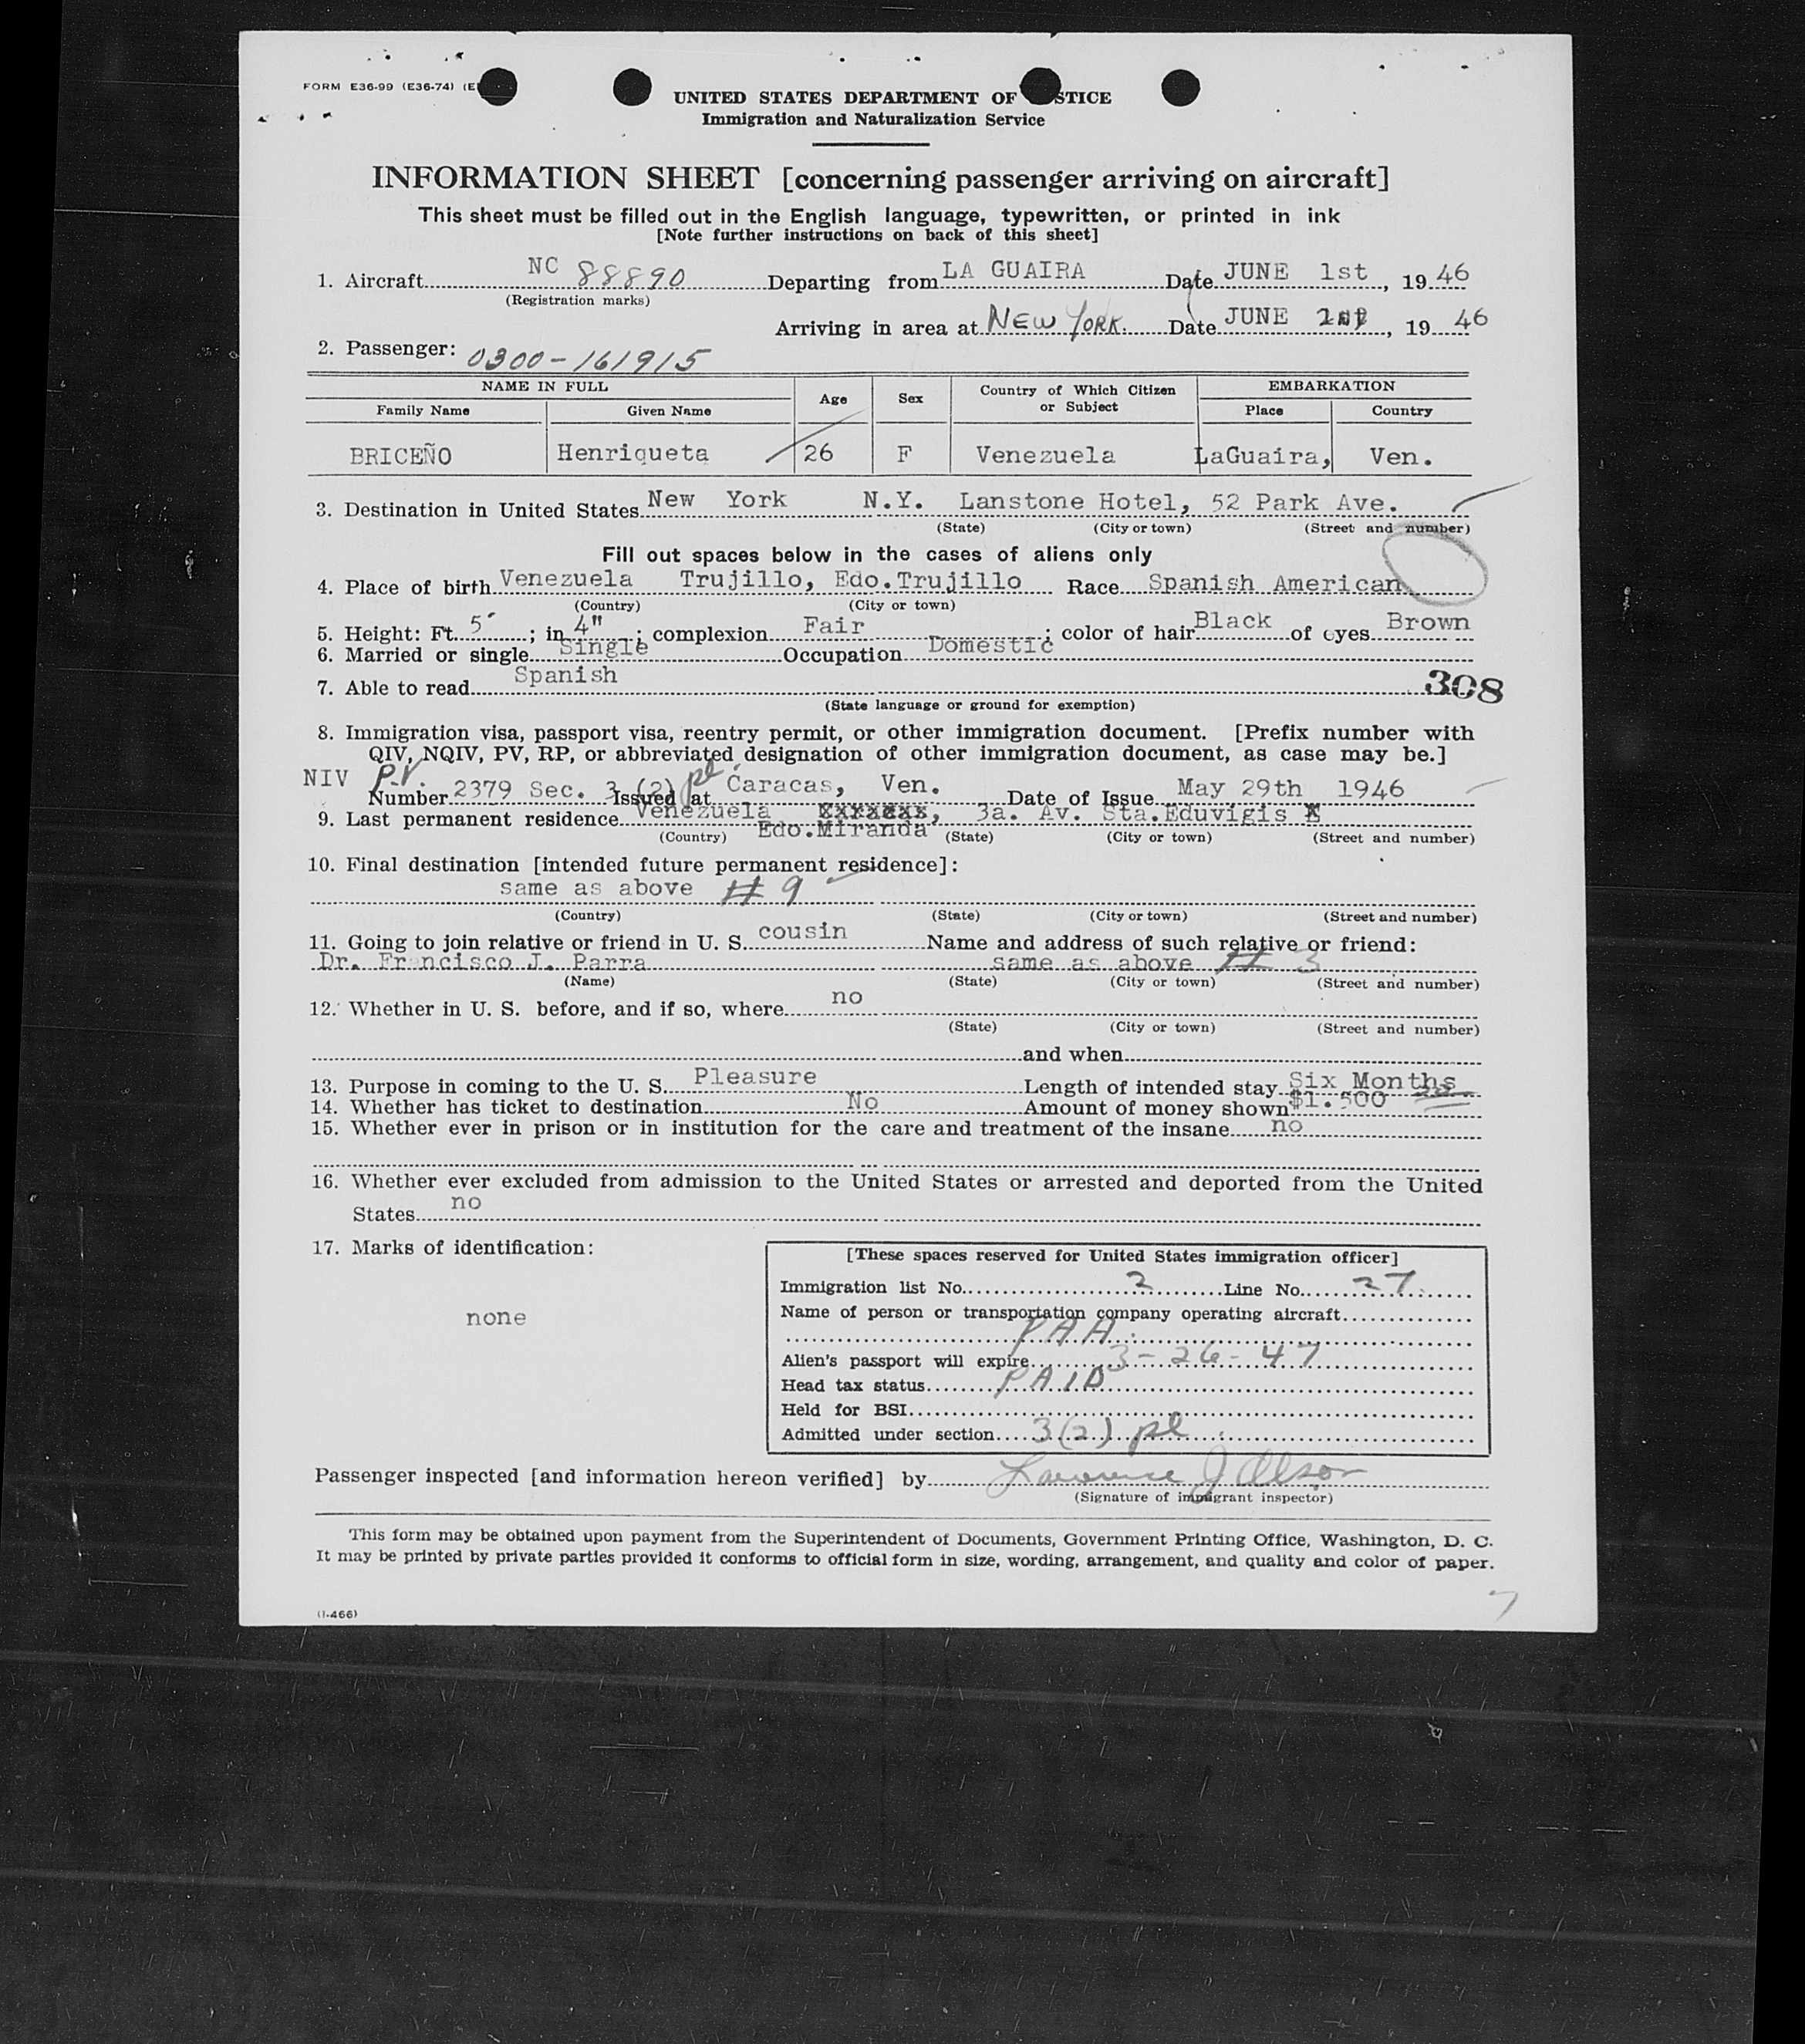 FORM E36-99 (E36-74) (E
UNITED STATES DEPARTMENT OF STICE
Immigration and Naturalization Service
INFORMATION SHEET [concerning passenger arriving on aircraft]
This sheet must be filled out in the English language, typewritten, or printed in ink
[Note further instructions on back of this sheet]
1. Aircraft NC 88890 Departing from LA GUAIRA Date JUNE 1st, 19 46
(Registration marks)
Arriving in area at NEW YORK. Date JUNE, 19 46
2. Passenger: 0300-161915
NAME IN FULL Age Sex Country of Which Citizen or Subject EMBARKATION
Family Name Given Name Place Country
BRICEÑO Henriqueta 26 F Venezuela LaGuaira, Ven.
3. Destination in United States New York N.Y. Lanstone Hotel, 52 Park Ave.
(State) (City or town) (Street and number)
Fill out spaces below in the cases of aliens only
4. Place of birth Venezuela Trujillo, Edo.Trujillo Race Spanish American
(Country) (City or town)
5. Height: Ft. 5' ; in 4" ; complexion Fair ; color of hair Black of eyes Brown
6. Married or single Single Occupation Domestic
7. Able to read Spanish
308
(State language or ground for exemption)
8. Immigration visa, passport visa, reentry permit, or other immigration document. [Prefix number with
QIV, NQIV, PV, RP, or abbreviated designation of other immigration document, as case may be.]
NIV P.V. Number 2379 Sec. 3 (2) pl. Issued at Caracas, Ven. Date of Issue May 29th 1946
9. Last permanent residence Venezuela 3a. Av. Sta.Eduvigis
(Country) Edo.Miranda (State) (City or town) (Street and number)
10. Final destination [intended future permanent residence]:
same as above # 9
(Country) (State) (City or town) (Street and number)
11. Going to join relative or friend in U. S. cousin Name and address of such relative or friend:
Dr. Francisco J. Parra same as above # 3
(Name) (State) (City or town) (Street and number)
12. Whether in U. S. before, and if so, where no
(State) (City or town) (Street and number)
and when
13. Purpose in coming to the U. S. Pleasure Length of intended stay Six Months
14. Whether has ticket to destination No Amount of money shown $1.500
15. Whether ever in prison or in institution for the care and treatment of the insane no
16. Whether ever excluded from admission to the United States or arrested and deported from the United
States no
17. Marks of identification:
none
[These spaces reserved for United States immigration officer]
Immigration list No. 2 Line No. 27
Name of person or transportation company operating aircraft
PAA
Alien's passport will expire 3-26-47
Head tax status PAID
Held for BSI
Admitted under section 3(2) pl
Passenger inspected [and information hereon verified] by Lawrence J Olson
(Signature of immigrant inspector)
This form may be obtained upon payment from the Superintendent of Documents, Government Printing Office, Washington, D. C.
It may be printed by private parties provided it conforms to official form in size, wording, arrangement, and quality and color of paper.
(I-466)